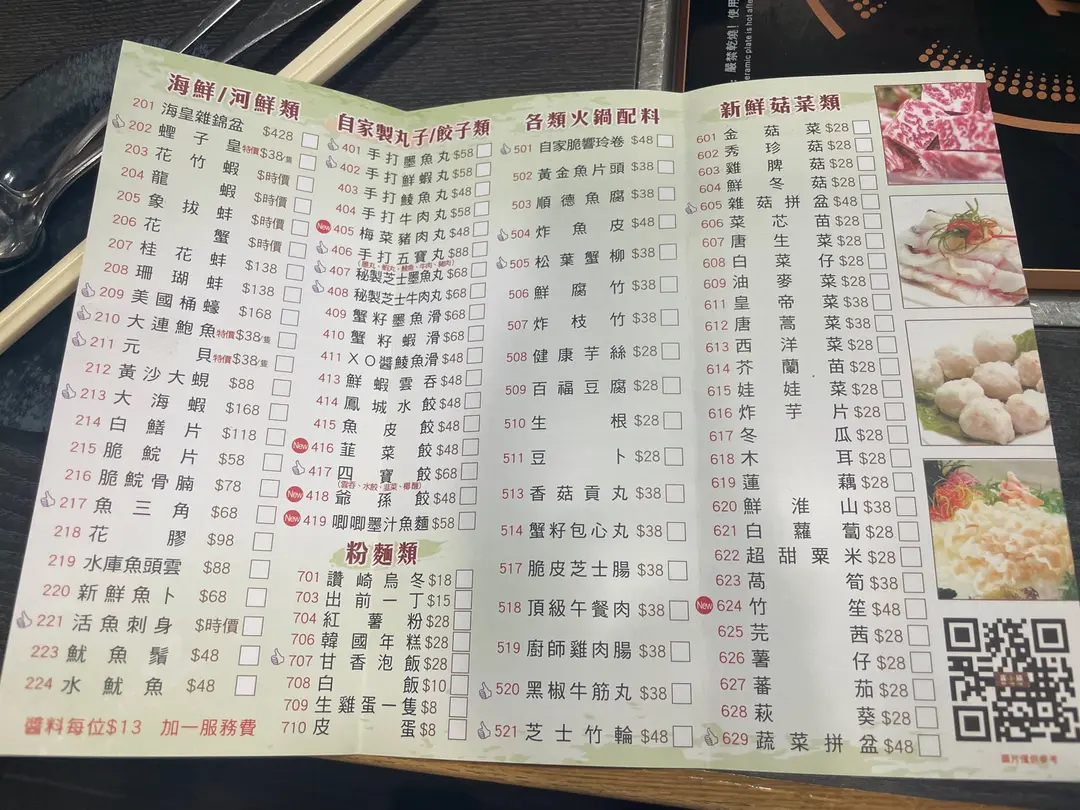 海鮮/河鮮類
201 海皇雜錦盆 $428
202 蟶子皇 特價$38/隻
203 花竹蝦 $時價
204 龍蝦 $時價
205 象拔蚌 $時價
206 花蟹 $時價
207 桂花蚌 $138
208 珊瑚蚌 $138
209 美國桶蠔 $168
210 大連鮑魚 特價$38/隻
211 元貝 特價$38/隻
212 黃沙大蜆 $88
213 大海蝦 $168
214 白鱔片 $118
215 脆鯇片 $58
216 脆鯇骨腩 $78
217 魚三角 $68
218 花膠 $98
219 水庫魚頭雲 $88
220 新鮮魚卜 $68
221 活魚刺身 $時價
223 魷魚鬚 $48
224 水魷魚 $48
醬料每位$13 加一服務費
自家製丸子/餃子類
401 手打墨魚丸 $58
402 手打鮮蝦丸 $58
403 手打鯪魚丸 $48
404 手打牛肉丸 $58
New 405 梅菜豬肉丸 $48
406 手打五寶丸 $88
407 秘製芝士墨魚丸 $68
408 秘製芝士牛肉丸 $68
409 蟹籽墨魚滑 $68
410 蟹籽蝦滑 $68
411 XO醬鯪魚滑 $48
413 鮮蝦雲吞 $48
414 鳳城水餃 $48
415 魚皮餃 $48
New 416 韮菜餃 $48
417 四寶餃 $68
New 418 爺孫餃 $48
New 419 唧唧墨汁魚麵 $58
粉麵類
701 讚崎烏冬 $18
703 出前一丁 $15
704 紅薯粉 $28
706 韓國年糕 $28
707 甘香泡飯 $28
708 白飯 $10
709 生雞蛋一隻 $8
710 皮蛋 $8
各類火鍋配料
501 自家脆響玲卷 $48
502 黃金魚片頭 $38
503 順德魚腐 $38
504 炸魚皮 $48
505 松葉蟹柳 $38
506 鮮腐竹 $38
507 炸枝竹 $38
508 健康芋絲 $28
509 百福豆腐 $28
510 生根 $28
511 豆卜 $28
513 香菇貢丸 $38
514 蟹籽包心丸 $38
517 脆皮芝士腸 $38
518 頂級午餐肉 $38
519 廚師雞肉腸 $38
520 黑椒牛筋丸 $38
521 芝士竹輪 $48
新鮮菇菜類
601 金菇菜 $28
602 秀珍菇 $28
603 雞脾菇 $28
604 鮮冬菇 $28
605 雜菇拼盆 $48
606 菜芯苗 $28
607 唐生菜 $28
608 白菜仔 $28
609 油麥菜 $28
611 皇帝菜 $38
612 唐蒿菜 $38
613 西洋菜 $28
614 芥蘭苗 $28
615 娃娃菜 $28
616 炸芋片 $28
617 冬瓜 $28
618 木耳 $28
619 蓮藕 $28
620 鮮淮山 $38
621 白蘿蔔 $28
622 超甜粟米 $28
623 萵筍 $38
New 624 竹笙 $48
625 芫茜 $28
626 薯仔 $28
627 蕃茄 $28
628 萩葵 $28
629 蔬菜拼盆 $48
圖片僅供參考
嚴禁乾燒！使用
eramic plate is hot after